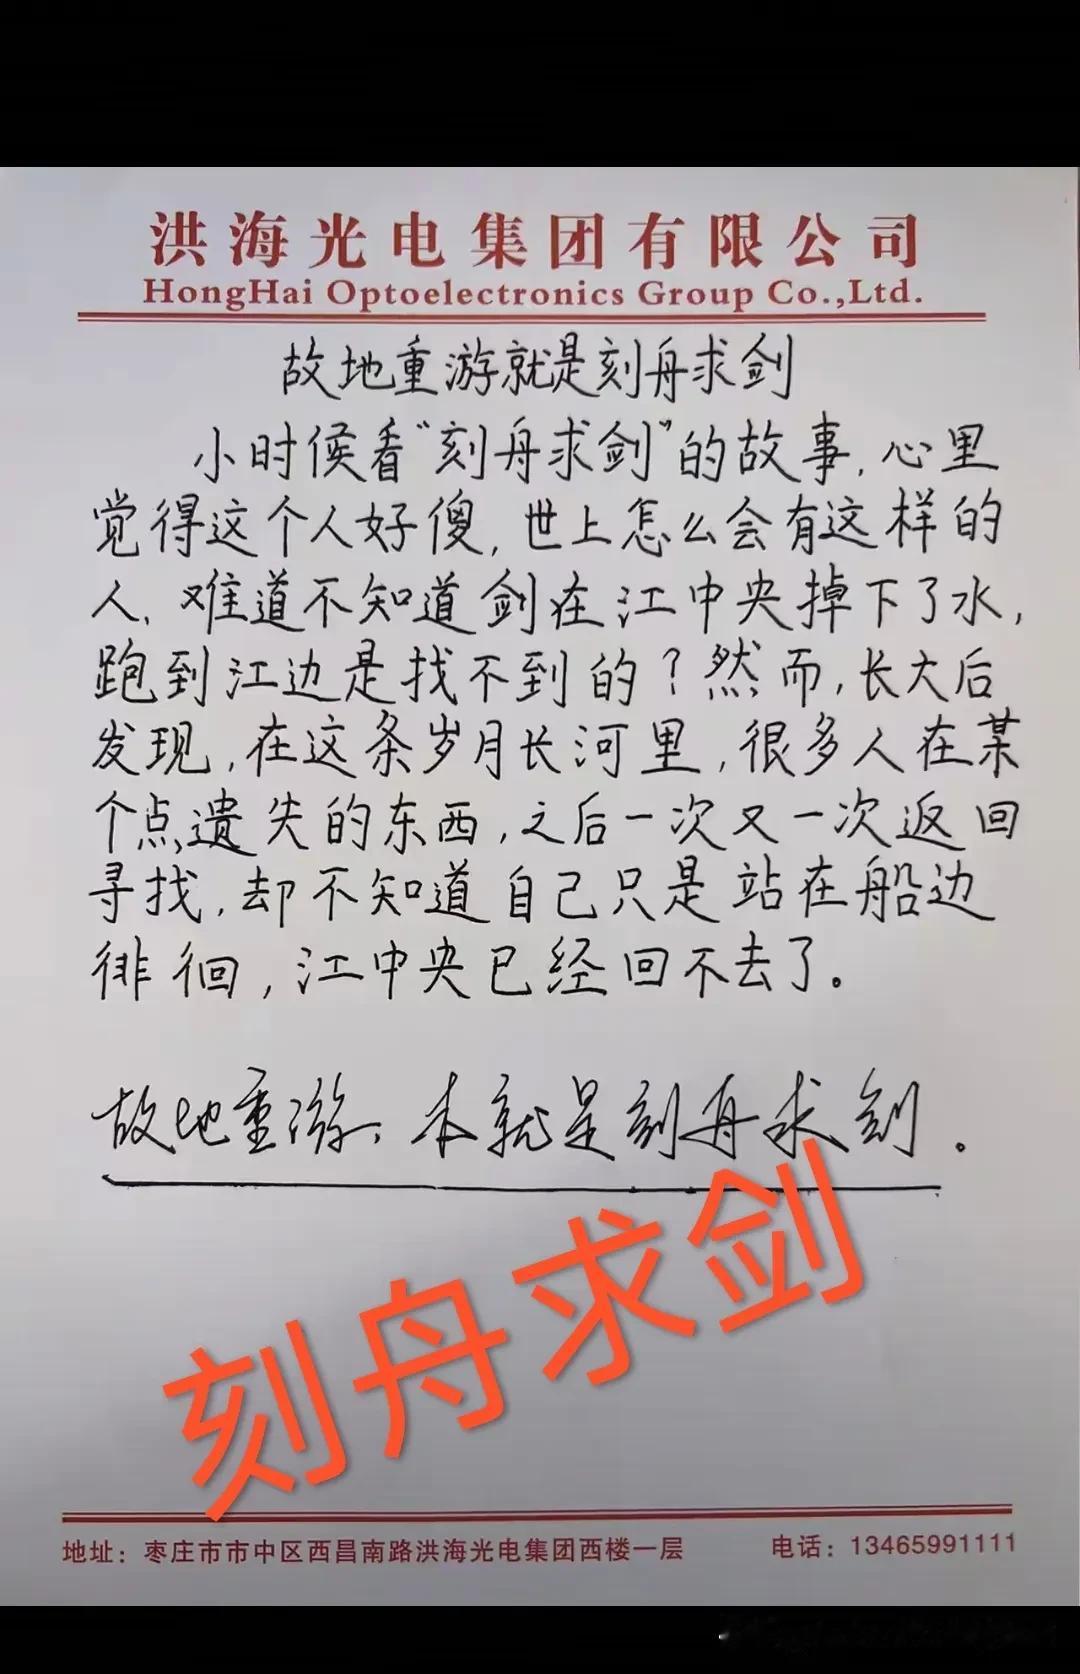 洪海光电集团有限公司
HongHai Optoelectronics Group Co.,Ltd.
故地重游就是刻舟求剑
小时候看“刻舟求剑”的故事,心里
觉得这个人好傻,世上怎么会有这样的
人、难道不知道剑在江中央掉下了水,
跑到江边是找不到的?然而,长大后
发现,在这条岁月长河里,很多人在某
个点遗失的东西,之后一次又一次返回
寻找,却不知道自己只是站在船边
徘徊,江中央已经回不去了。
故地重游、本就是刻舟求剑.
刻舟求剑
地址:枣庄市市中区西昌南路洪海光电集团西楼一层 电话:13465991111